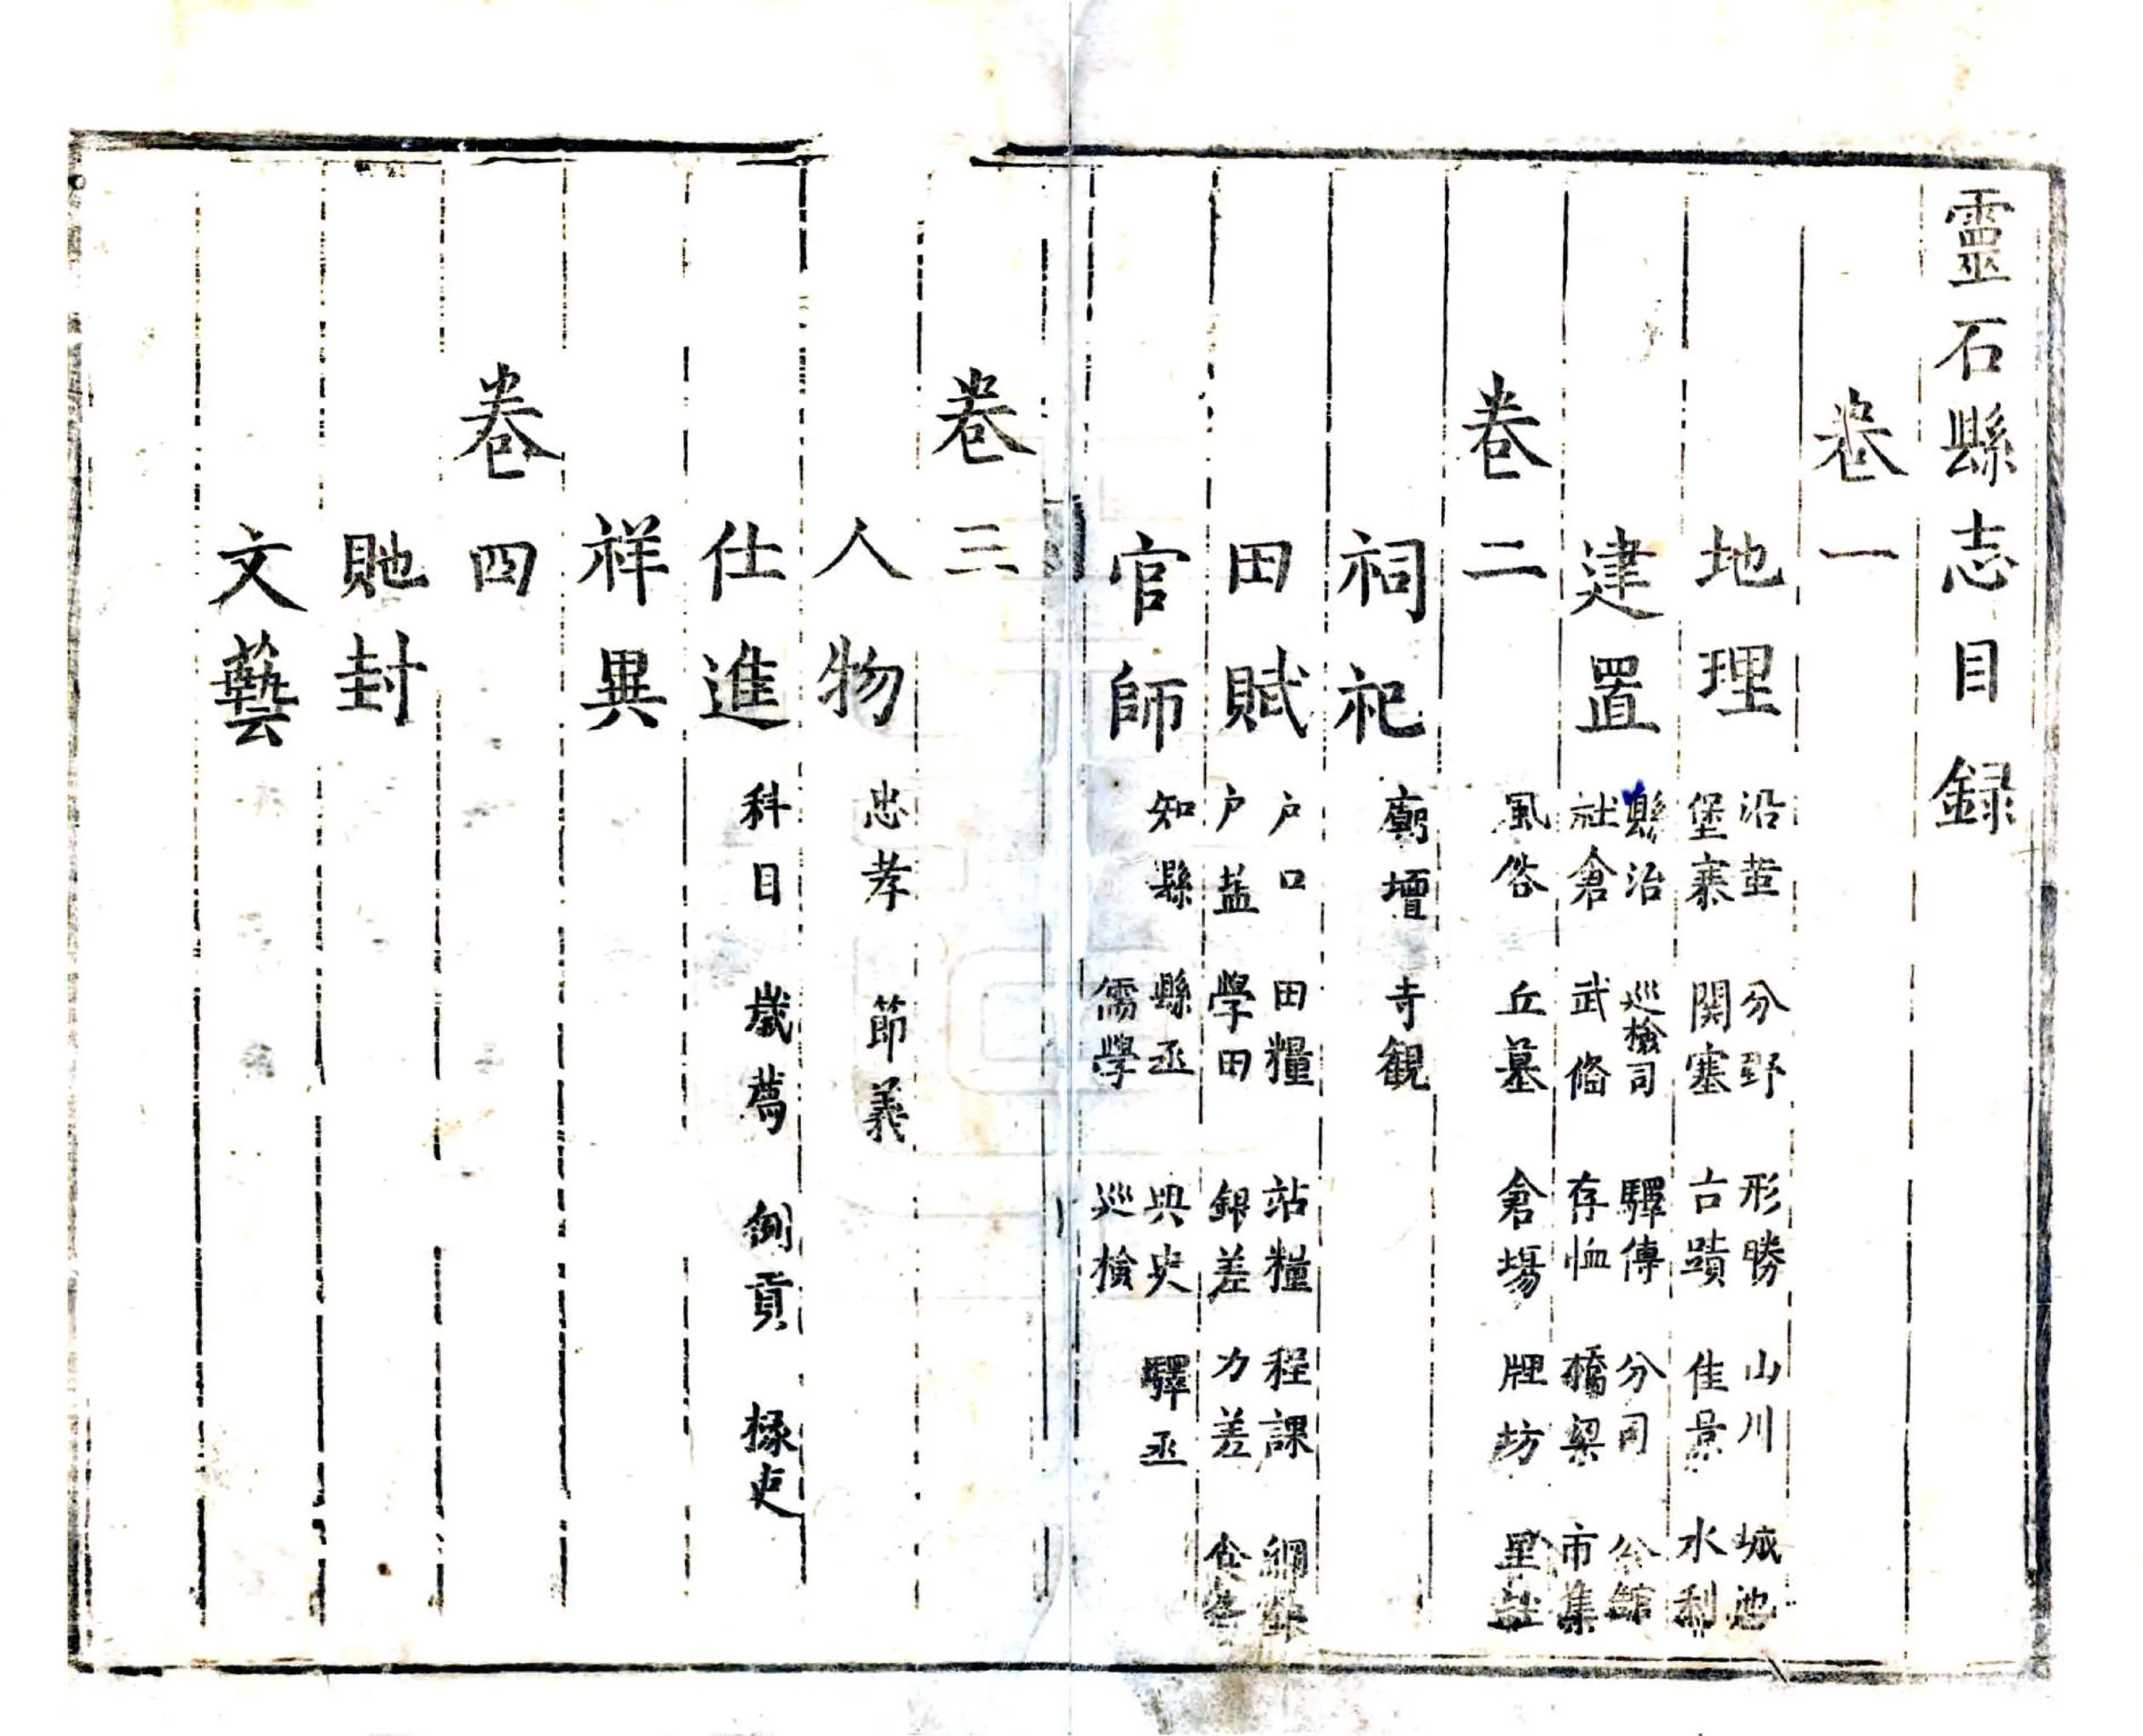 靈石縣志目録
卷一
地理 沿革 分野 形勝 山川 城池
堡寨 関塞 古蹟 佳景 水利
建置 縣治 巡檢司 驛傳 分司 公館
社倉 武俻 存恤 橋梁 市集
風俗 丘墓 倉場 牌坊 里社
卷二
祠祀 廟壇 寺觀
田賦 户口 田糧 站糧 程課
户盐 學田 銀差 力差
官師 知縣 縣丞 典史 驛丞
儒學 巡檢
卷三
人物 忠孝 節義
仕進 科目 歲薦 例貢 掾吏
祥異
卷四
貤封
文藝